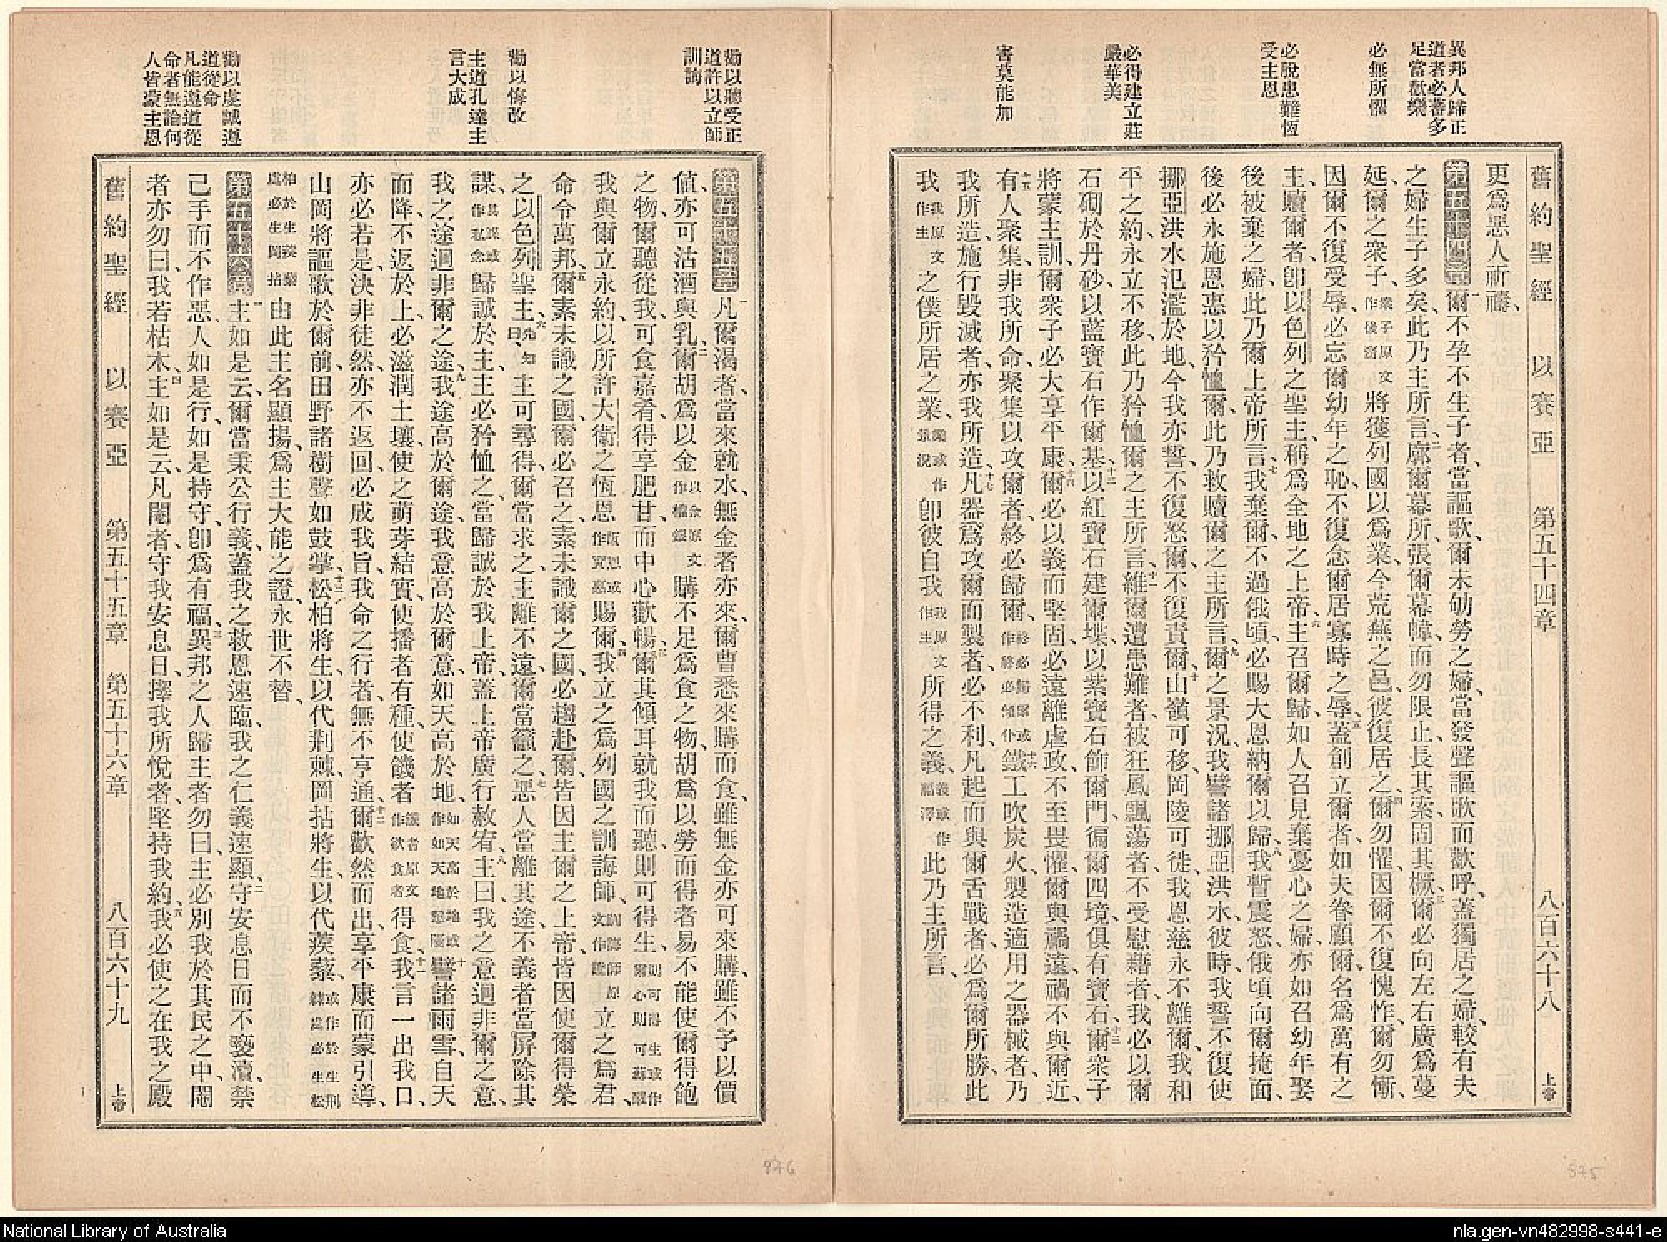 異邦人歸正
道者必蕃多
足當歡樂
必無所懼
必脫患難恆
受主恩
必得建立莊
嚴華美
害莫能加
舊約聖經 以賽亞 第五十四章 八百六十八 上帝
更爲惡人祈禱、
第五十四章 一爾不孕不生子者、當謳歌、爾未劬勞之婦、當發聲謳歌而歡呼、蓋獨居之婦、較有夫
之婦、生子多矣、此乃主所言、二廓爾幕所、張爾幕幃、而勿限止、長其索、固其橛、三爾必向左右廣爲蔓
延、爾之衆子、衆子原文作後裔將獲列國以爲業、今荒蕪之邑、彼復居之、四爾勿懼、因爾不復愧怍、爾勿慚、
因爾不復受辱、必忘爾幼年之恥、不復念爾居寡時之辱、五蓋創立爾者、如夫眷顧爾、名爲萬有之
主、贖爾者、卽以色列之聖主、稱爲全地之上帝、六主召爾歸、如人召見棄憂心之婦、亦如召幼年娶
後被棄之婦、此乃爾上帝所言、七我棄爾不過俄頃、必賜大恩納爾以歸、八我暫震怒、俄頃向爾掩面、
後必永施恩惠以矜恤爾、此乃救贖爾之主所言、九爾之景況、我譬諸挪亞洪水、彼時我誓不復使
挪亞洪水氾濫於地、今我亦誓不復怒爾、不復責爾、十山嶺可移、岡陵可徙、我恩慈永不離爾、我和
平之約、永立不移、此乃矜恤爾之主所言、十一維爾遭患難者、被狂風飄蕩者、不受慰藉者、我必以爾
石砌於丹砂、以藍寶石作爾基、十二以紅寶石建爾堞、以紫寶石飾爾門、徧爾四境、俱有寶石、十三爾衆子
將蒙主訓、爾衆子必大享平康、十四爾必以義而堅固、必遠離虐政、不至畏懼、爾與禍遠、禍不與爾近、
十五有人聚集、非我所命、聚集以攻爾者、終必歸爾、終必歸爾或作將必傾仆十六鐵工吹炭火、製造適用之器械者、乃
我所造、施行毀滅者、亦我所造、十七凡器爲攻爾而製者、必不利、凡起而與爾舌戰者、必爲爾所勝、此
我我原文作主之僕所居之業、業或作景況卽彼自我我原文作主所得之義、義或作福澤此乃主所言、
勸以聽受正
道許以立師
訓誨
勸以悔改
主道孔達主
言大成
勸以虔誠遵
道從命
凡能遵道從
命者無論何
人皆蒙主恩
第五十五章 一凡爾渴者、當來就水、無金者亦來、爾曹悉來購而食、雖無金亦可來購、雖不予以價
値、亦可沽酒與乳、二爾胡爲以金以金原文作權銀購不足爲食之物、胡爲以勞而得者、易不能使爾得飽
之物、爾聽從我、可食嘉肴、得享肥甘、而中心歡暢、三爾其傾耳、就我而聽、則可得生、則可得生或作爾心則可蘇醒
我與爾立永約、以所許大衛之恆恩恆恩或作實惠賜爾、四我立之爲列國之訓誨師、訓誨師原文作證立之爲君、
命令萬邦、五爾素未識之國、爾必召之、素未識爾之國、必趨赴爾、皆因主爾之上帝、皆因使爾得榮
之以色列聖主、六先知曰主可尋得、爾當求之、主離不遠、爾當籲之、七惡人當離其途、不義者當屏除其
謀、其謀或作私念歸誠於主、主必矜恤之、當歸誠於我上帝、蓋上帝廣行赦宥、八主曰、我之意迥非爾之意、
我之途迥非爾之途、九我途高於爾途、我意高於爾意、如天高於地、如天高於地或作如天地懸隔十譬諸雨雪、自天
而降、不返於上、必滋潤土壤、使之萌芽結實、使播者有種、使饑者饑者原文作欲食者得食、十一我言一出我口、
亦必若是、決非徒然、亦不返回、必成我旨、我命之行者、無不亨通、十二爾歡然而出、享平康而蒙引導、
山岡將謳歌於爾前、田野諸樹、聲如鼓掌、十三松柏將生、以代荆棘、岡拈將生、以代蒺藜、或作於生荆棘處必生松柏於生蒺藜處必生岡拈
由此主名顯揚、爲主大能之證、永世不替、
第五十六章 一主如是云、爾當秉公行義、蓋我之救恩速臨、我之仁義速顯、二守安息日而不褻瀆、禁
己手而不作惡、人如是行、如是持守、卽爲有福、三異邦之人歸主者勿曰、主必別我於其民之中、閹
者亦勿曰、我若枯木、四主如是云、凡閹者守我安息日、擇我所悅者、堅持我約、五我必使之在我之殿
舊約聖經 以賽亞 第五十五章 第五十六章 八百六十九 上帝
876
875
National Library of Australia
nla.gen-vn482998-s441-e